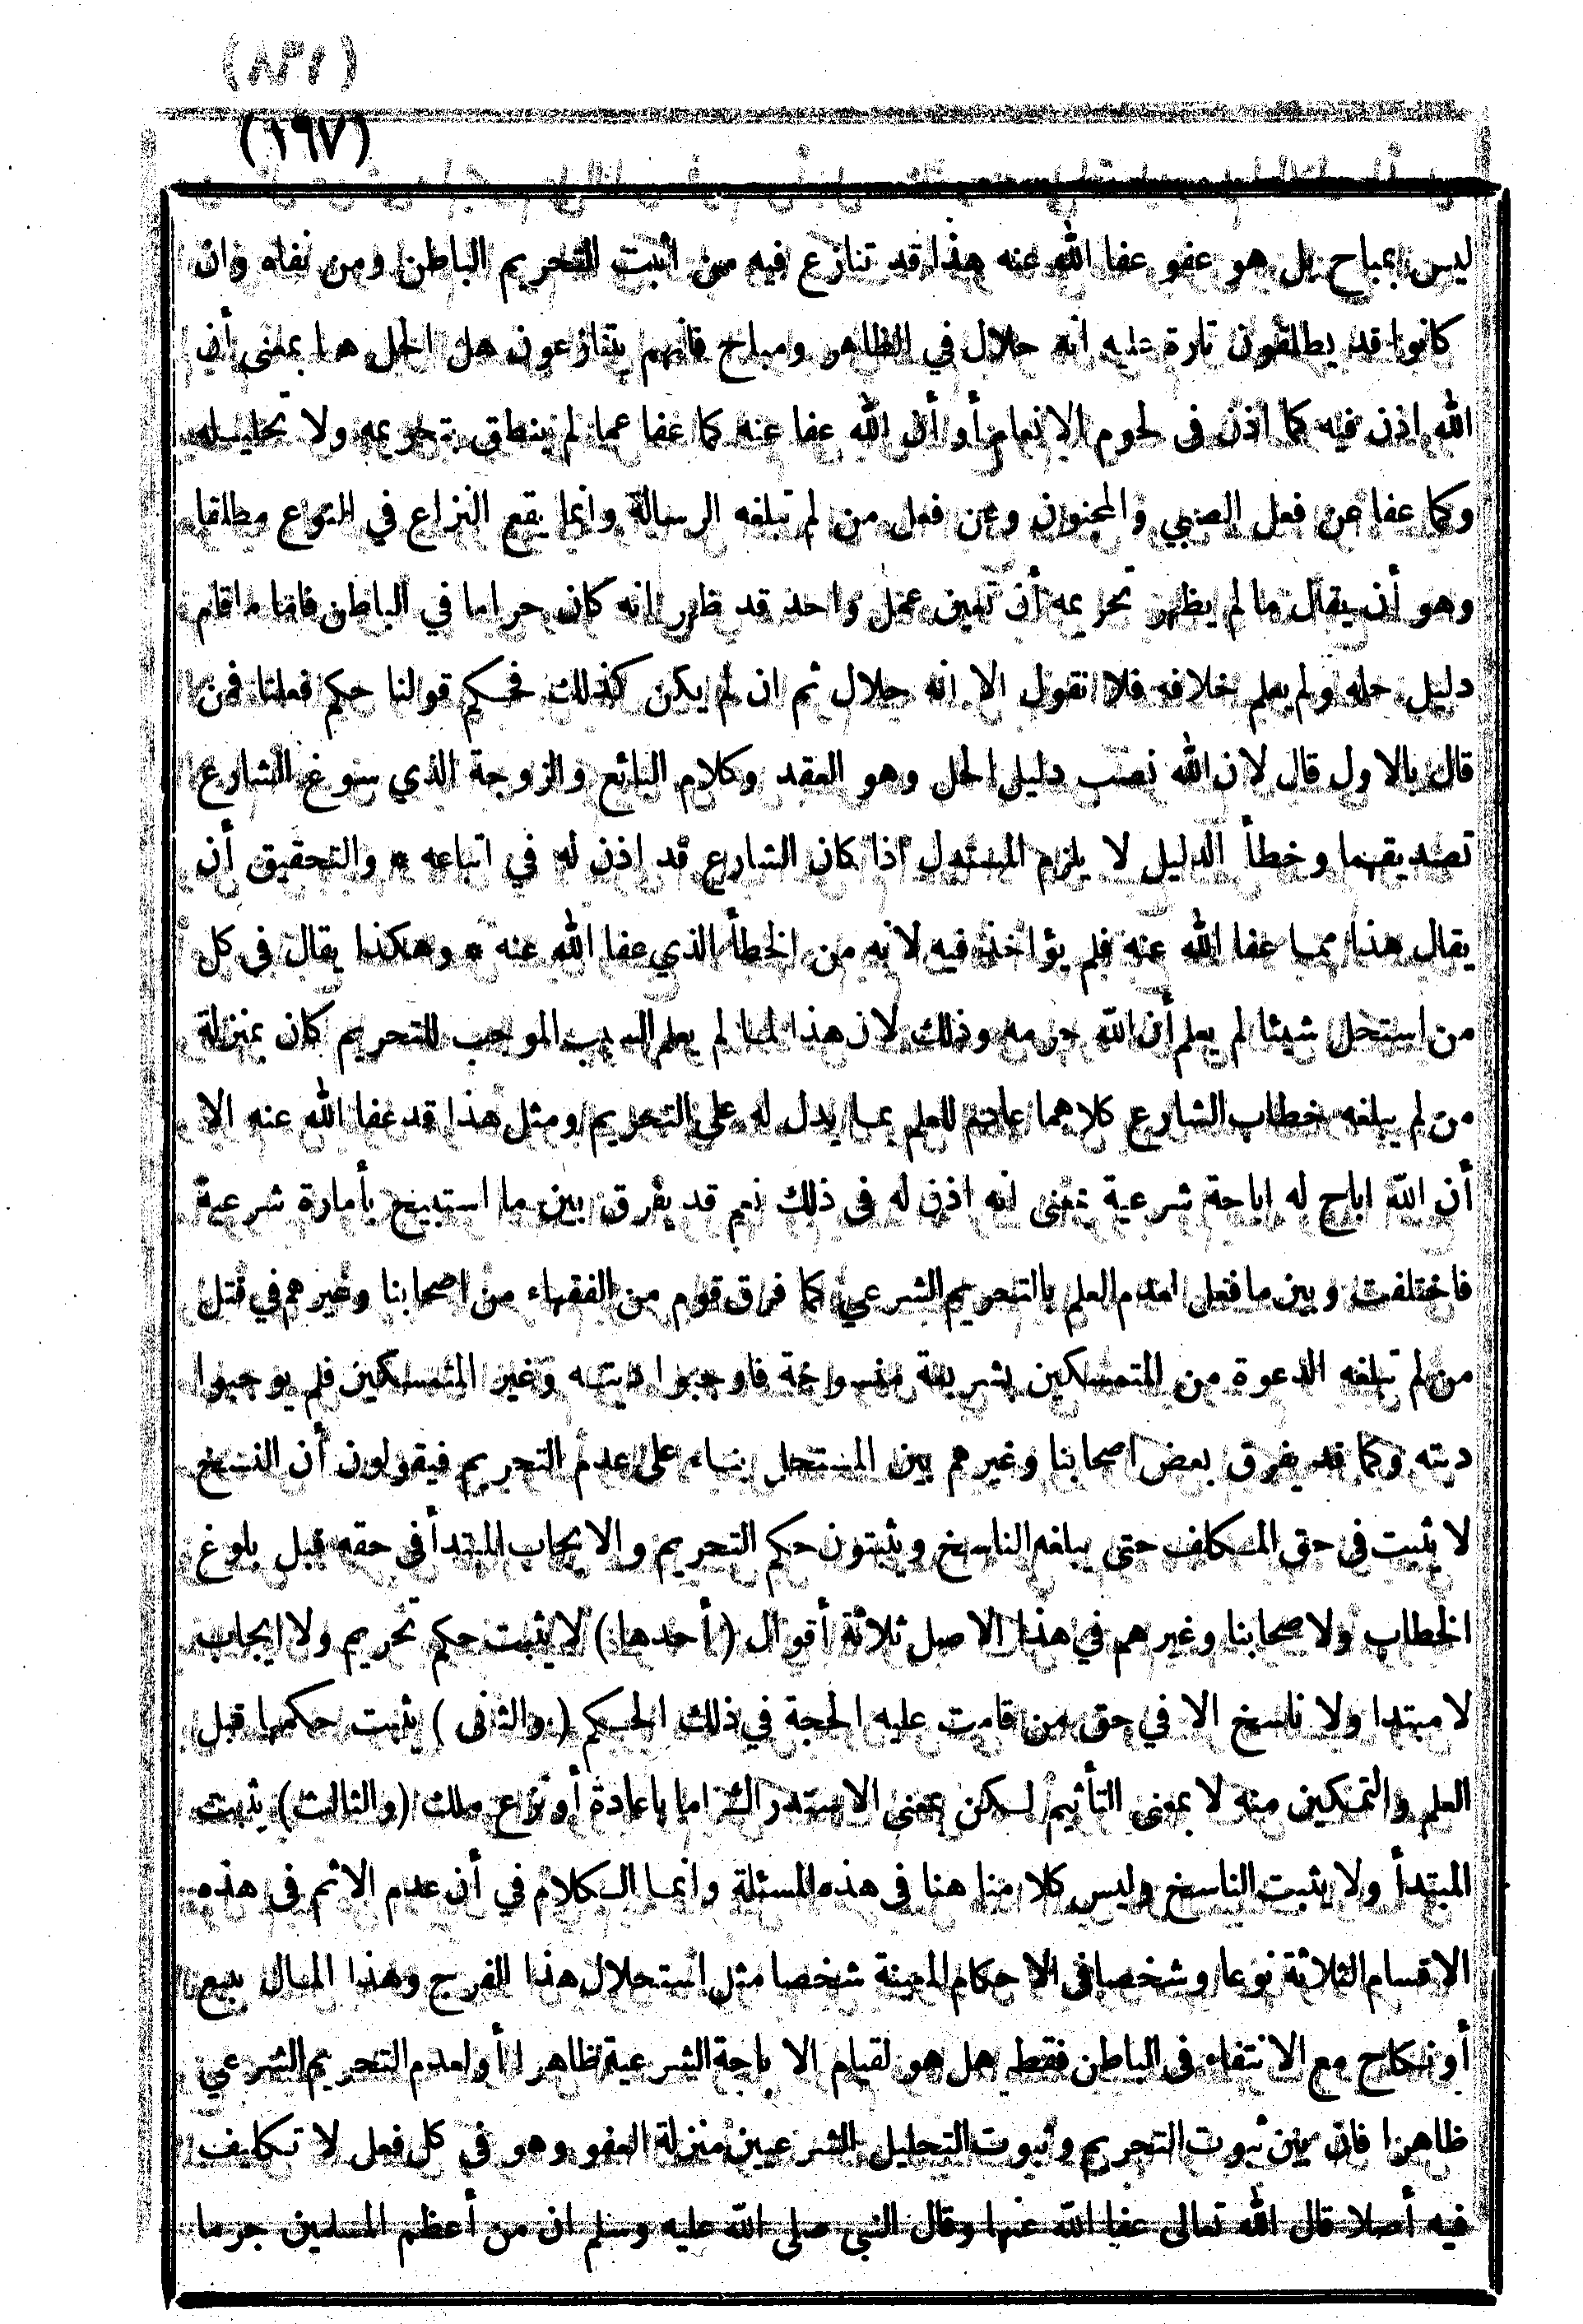 (١٩٧)
ليس بمباح بل هو عفو عفا الله عنه هذا قد تنازع فيه من أثبت التحريم الباطن ومن نفاه وان
كانوا قد يطلقون تارة عليه انه حلال في الظاهر ومباح فانهم يتنازعون هل الحل هنا بمعنى أن
الله اذن فيه كما اذن فى لحوم الانعام أو أن الله عفا عنه كما عفا عما لم ينطق بتحريمه ولا تحليله
وكما عفا عن فعل الصبي والمجنون وعن فعل من لم تبلغه الرسالة وانما يقع النزاع في النوع مطلقا
وهو أن يقال ما لم يظهر تحريمه أن تعين عمل واحد قد ظهر انه كان حراما في الباطن فاما ما قام
دليل حله ولم يعلم خلافه فلا نقول الا انه حلال ثم ان لم يكن كذلك فحكم قولنا حكم فعلنا فمن
قال بالاول قال لان الله نصب دليل الحل وهو العقد وكلام البائع والزوجة الذي سوغ الشارع
تصديقهما وخطأ الدليل لا يلزم المستدل اذا كان الشارع قد اذن له في اتباعه * والتحقيق أن
يقال هذا مما عفا الله عنه فلم يؤاخذ فيه لانه من الخطأ الذي عفا الله عنه * وهكذا يقال فى كل
من استحل شيئا لم يعلم أن الله حرمه وذلك لان هذا لما لم يعلم السبب الموجب للتحريم كان بمنزلة
من لم يبلغه خطاب الشارع كلاهما عادم للعلم بما يدل له على التحريم ومثل هذا قد عفا الله عنه الا
أن الله اباح له اباحة شرعية بمعنى انه اذن له فى ذلك نعم قد يفرق بين ما استبيح بأمارة شرعية
فاختلفت وبين ما فعل لعدم العلم بالتحريم الشرعي كما فرق قوم من الفقهاء من اصحابنا وغيرهم في قتل
من لم تبلغه الدعوة من المتمسكين بشريعة منسوخة فاوجبوا ديته وغير المتمسكين فلم يوجبوا
ديته وكما قد يفرق بعض اصحابنا وغيرهم بين المستحل بناء على عدم التحريم فيقولون أن النسخ
لا يثبت فى حق المكلف حتى يبلغه الناسخ ويثبتون حكم التحريم والايجاب المبتدأ في حقه قبل بلوغ
الخطاب ولاصحابنا وغيرهم في هذا الاصل ثلاثة أقوال (أحدها) لا يثبت حكم تحريم ولا ايجاب
لا مبتدا ولا ناسخ الا في حق من قامت عليه الحجة في ذلك الحكم (والثانى) يثبت حكمها قبل
العلم والتمكين منه لا بمعنى التأثيم لكن بمعنى الاستدراك اما باعادة أو نزع ملك (والثالث) يثبت
المبتدأ ولا يثبت الناسخ وليس كلامنا هنا فى هذه المسئلة وانما الكلام في أن عدم الاثم فى هذه
الاقسام الثلاثة نوعا وشخصا فى الاحكام المعينة شخصا مثل استحلال هذا الفرج وهذا المال ببيع
أو نكاح مع الانتفاء فى الباطن فقط هل هو لقيام الاباحة الشرعية ظاهرا أو لعدم التحريم الشرعي
ظاهرا فان بين ثبوت التحريم وثبوت التحليل الشرعيين منزلة العفو وهو في كل فعل لا تكليف
فيه أصلا قال الله تعالى عفا الله عنها وقال النبي صلى الله عليه وسلم ان من أعظم المسلمين جرما